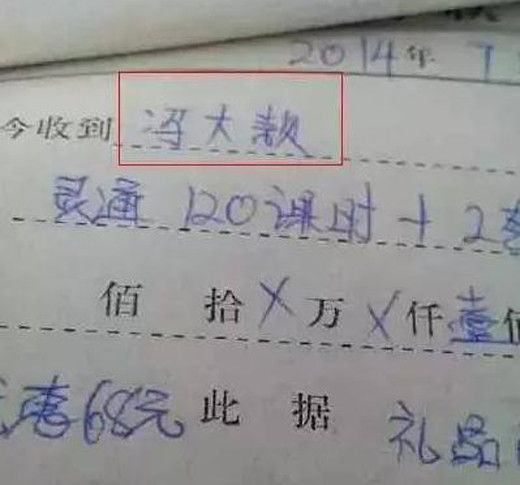 2014年 7
今收到 冯大款
灵通 120课时+2
佰 拾 X 万 X 仟 壹
惠68元 此 据 礼品